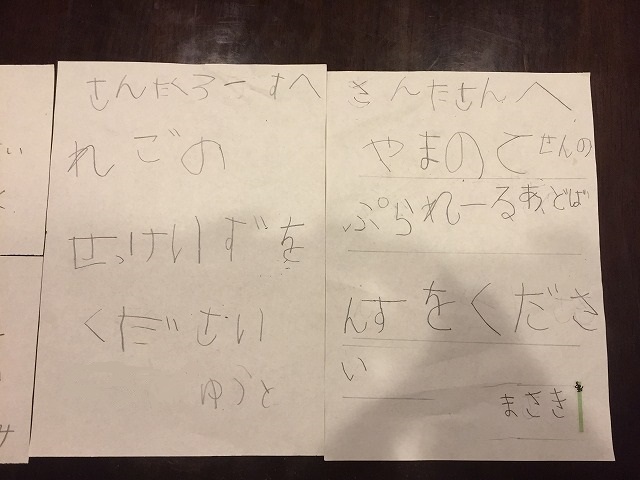 さんたくろーすへ
れごの
せっけいずを
ください
ゆうと
さんたさんへ
やまのてせんの
ぷられーるあどば
んすをくださ
い
まさき